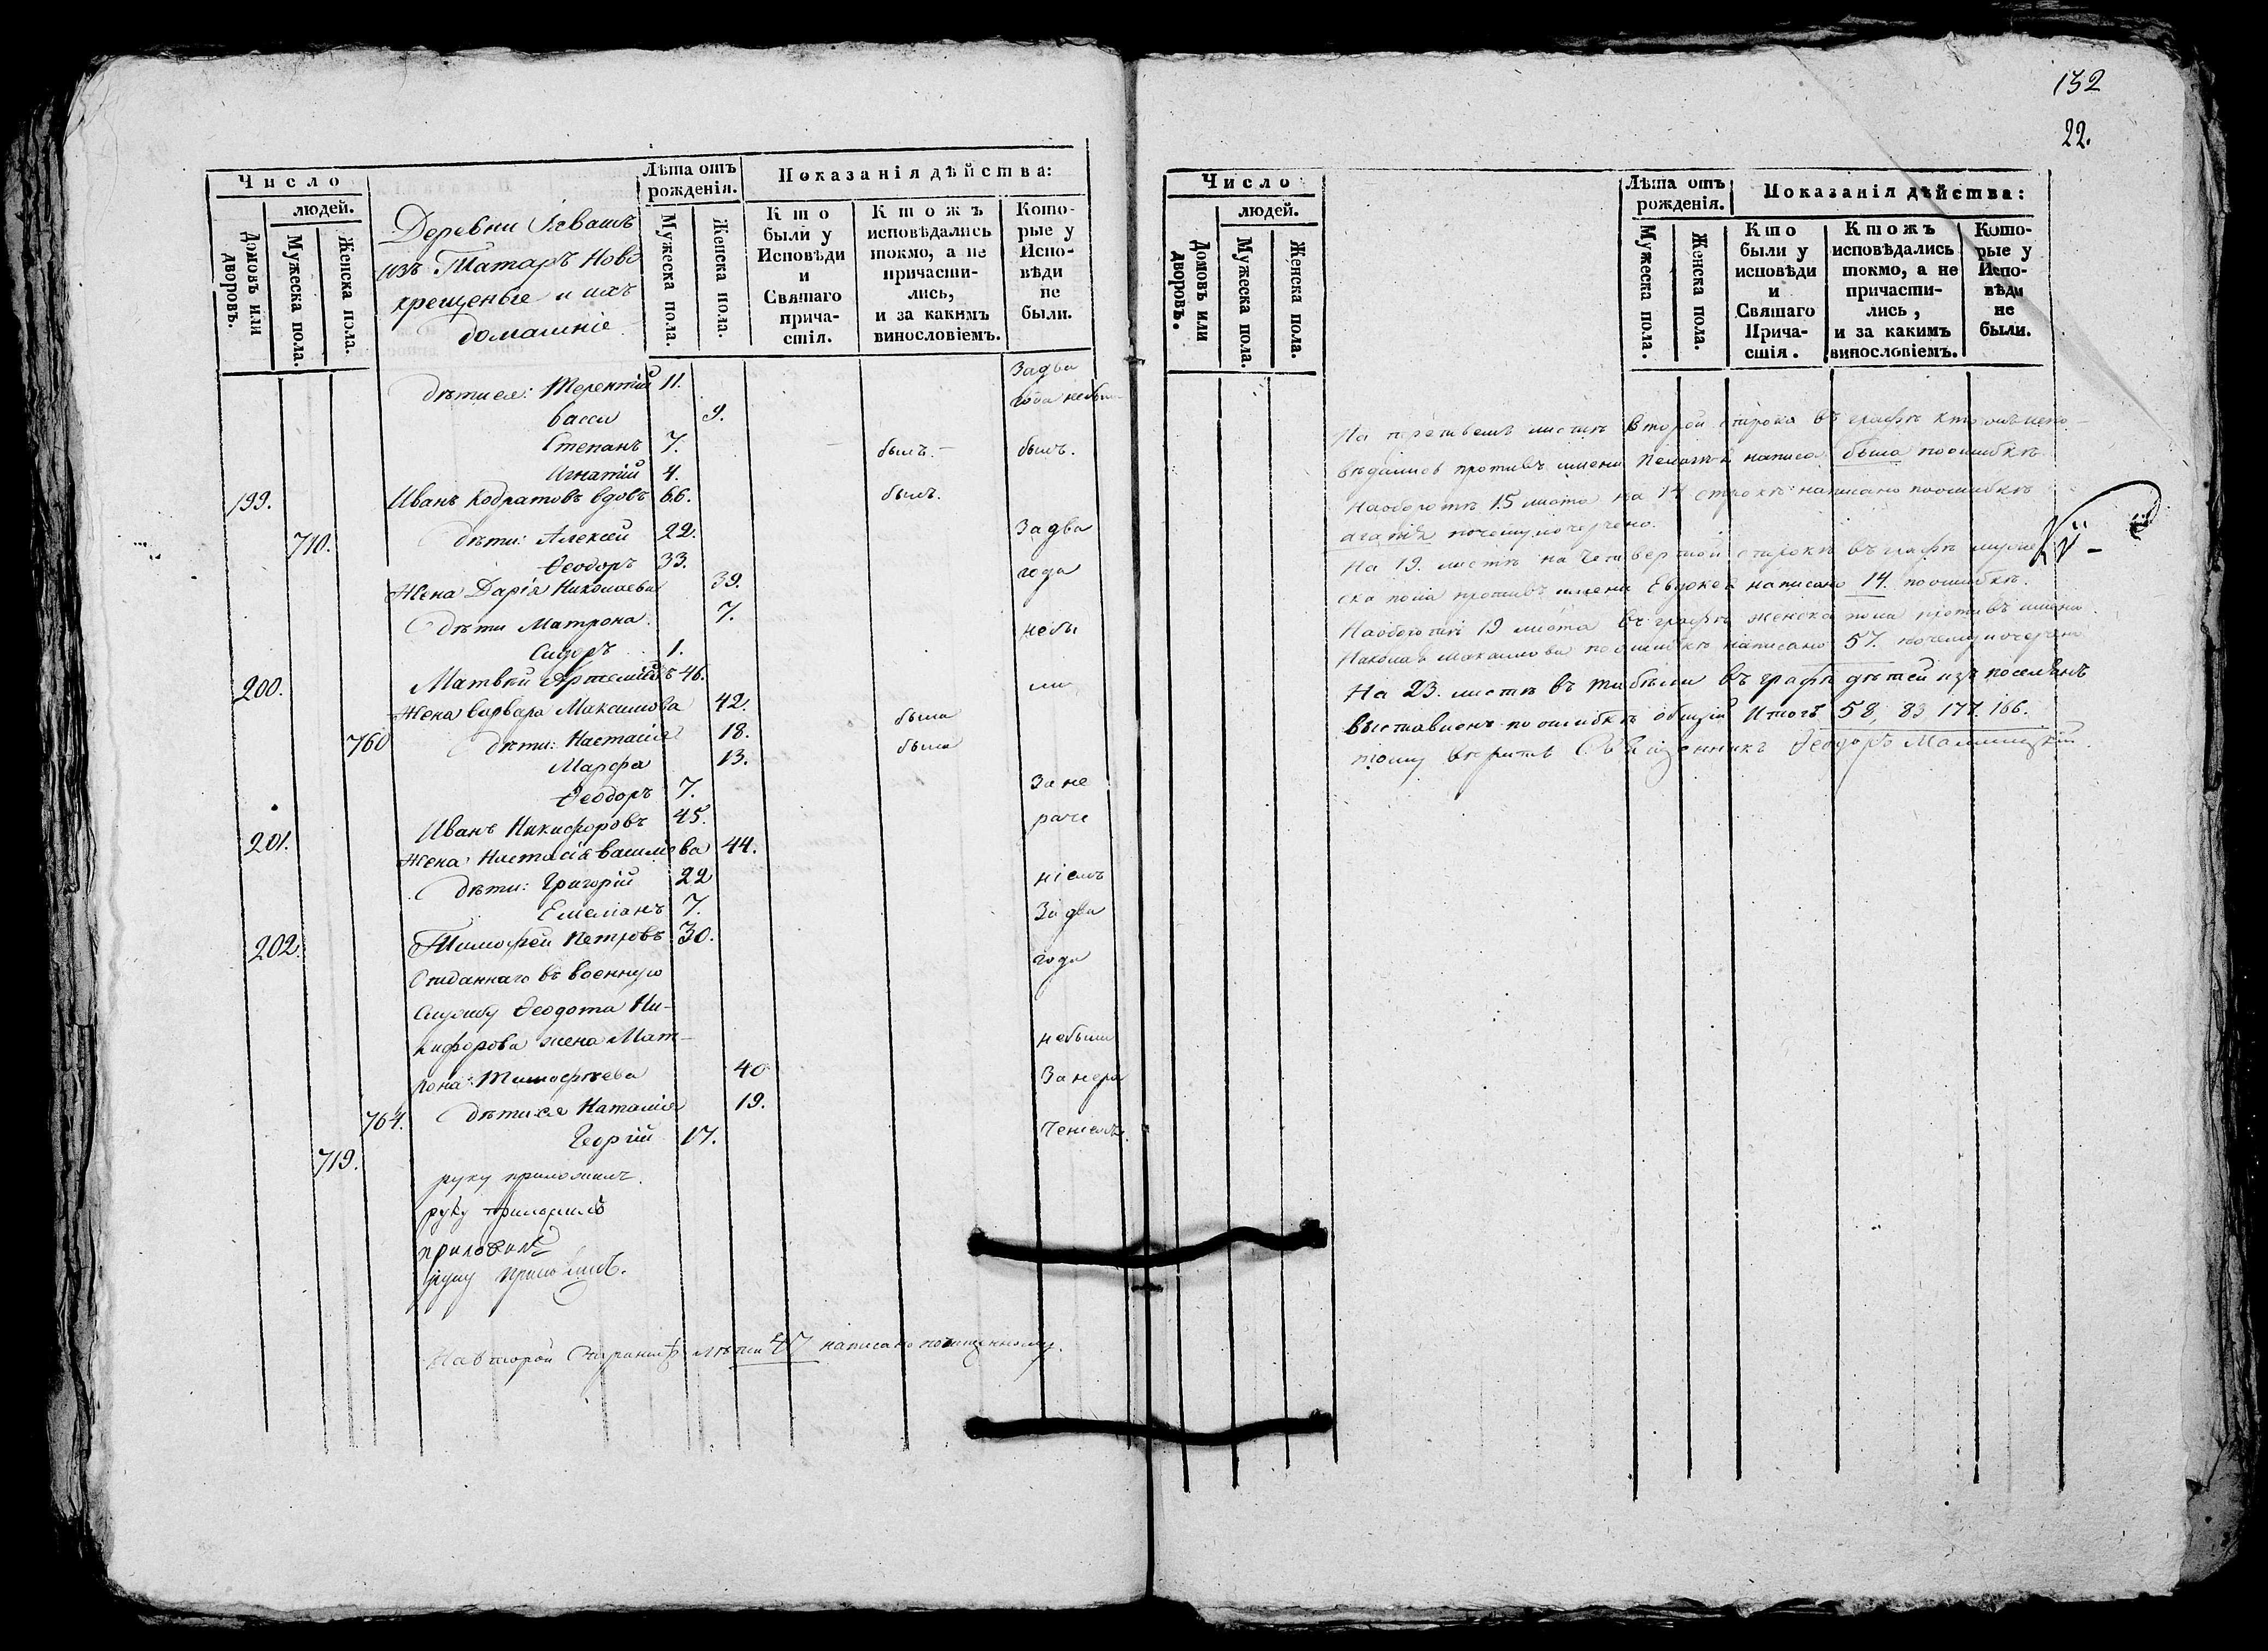 Число
людей.
Домовъ или дворовъ.
Мужеска пола.
Женска пола.
Деревни
изъ Татаръ Ново
крещеные и ихъ
домашніе
Лѣта отъ рожденія.
Мужеска пола.
Женска пола.
Показанія дѣйства:
Кто были у Исповѣди и Святаго причастія.
Ктожъ исповѣдались токмо, а не причастились, и за какимъ винословіемъ.
Которые у Исповѣди не были.
дѣти ея: Терентій 11. За два
Васса 9. года не бы
Степанъ 7. былъ. былъ.
Игнатій 4.
199. Иванъ Кодратовъ вдовъ 66. былъ.
710. дѣти: Алексей 22. За два
Ѳеодоръ 33.
Жена Дарія Николаева 39. года
дѣти Матрона 7.
Сидоръ 1. не бы
200. Матвѣй Артемьевъ 46.
Жена Варвара Максимова 42. ли
760 дѣти: Настасія 18. была
Марфа 13. была
Ѳеодоръ 7. За не
201. Иванъ Никифоровъ 45. раче
Жена Настасія Василиева 44.
дѣти: Григорій 22 ніемъ
Емеліанъ 7. За два
202. Тимофей Петровъ 30.
Отданнаго въ военную года
службу Ѳеодота Ни-
кифорова жена Мат- небыли
рона Тимофѣева 40 За нера
764. дѣти ея Наталія 19.
Георгій 17. ченіемъ.
719.
руку приложилъ.
руку приложилъ
приложилъ
руку приложилъ.
На второй страницѣ лѣта 47 написано по
132
22.
Число
людей.
Домовъ или дворовъ.
Мужеска пола.
Женска пола.
Лѣта отъ рожденія.
Мужеска пола.
Женска пола.
Показанія дѣйства:
Кто были у исповѣди и Святаго Причастія.
Ктожъ исповѣдались токмо, а не причастились, и за какимъ винословіемъ.
Которые у Исповѣди не были.
На листѣ второй строки въ графѣ испо-
вѣдались противъ имени написа была поошибкѣ
Наоборотѣ 15 листа на 14 строкѣ написано поошибкѣ
почему почерчено.
На 19. листѣ на четвертой строкѣ въ графѣ муже
ска пола противъ имени Евдокеи написано 14. поошибкѣ.
Наоборотѣ 19 листа въ графѣ женска пола противъ имени
Николая Максимова поошибкѣ написано 57. почему почерчено
На 23. листѣ въ табели въ графѣ дѣтей изъ поселянъ
выставленъ поошибкѣ общій Итогъ 58, 83 177. 166.
тому вѣрить Священникъ Ѳеодоръ